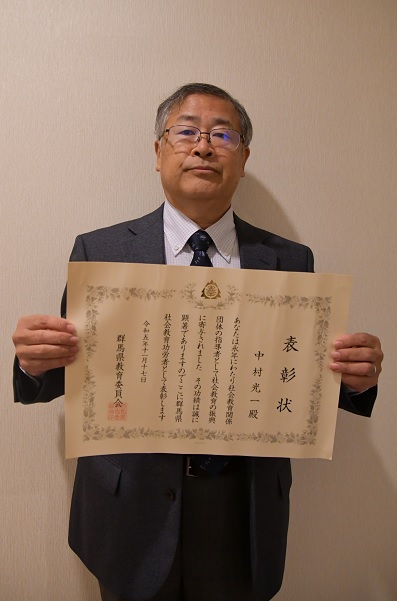 表彰状
中村光一殿
あなたは永年にわたり社会教育関係
団体の指導者として社会教育の振興
に寄与されました その功績は誠に
顕著でありますのでここに群馬県
社会教育功労者として表彰します
令和五年十一月十七日
群馬県教育委員会